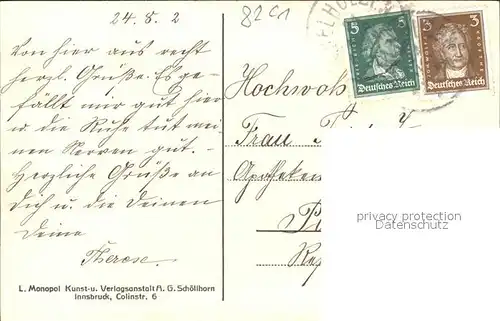 24.8.2
82C1
Von hier aus recht
herzl. Grüße. Es ge-
fällt mir gut hier
u die Ruhe tut mei
nen Nerven gut.-
Herzliche Grüße an
Dich u. die Deinen
Deine
Therese.
L. Monopol Kunst-u. Verlagsanstalt A. G. Schöllhorn
Innsbruck, Colinstr. 6
5 5
FRIEDRICH
Deutsches Reich
3 3
JOHANN WOLFG
GOETHE
Deutsches Reich
Hochwoh
Frau
Apotheken
privacy protection
Datenschutz